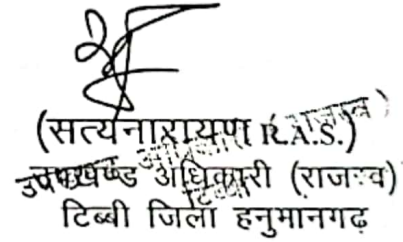 (सत्यनारायण R.A.S.)
उपखण्ड अधिकारी (राजस्व)
टिब्बी जिला हनुमानगढ़